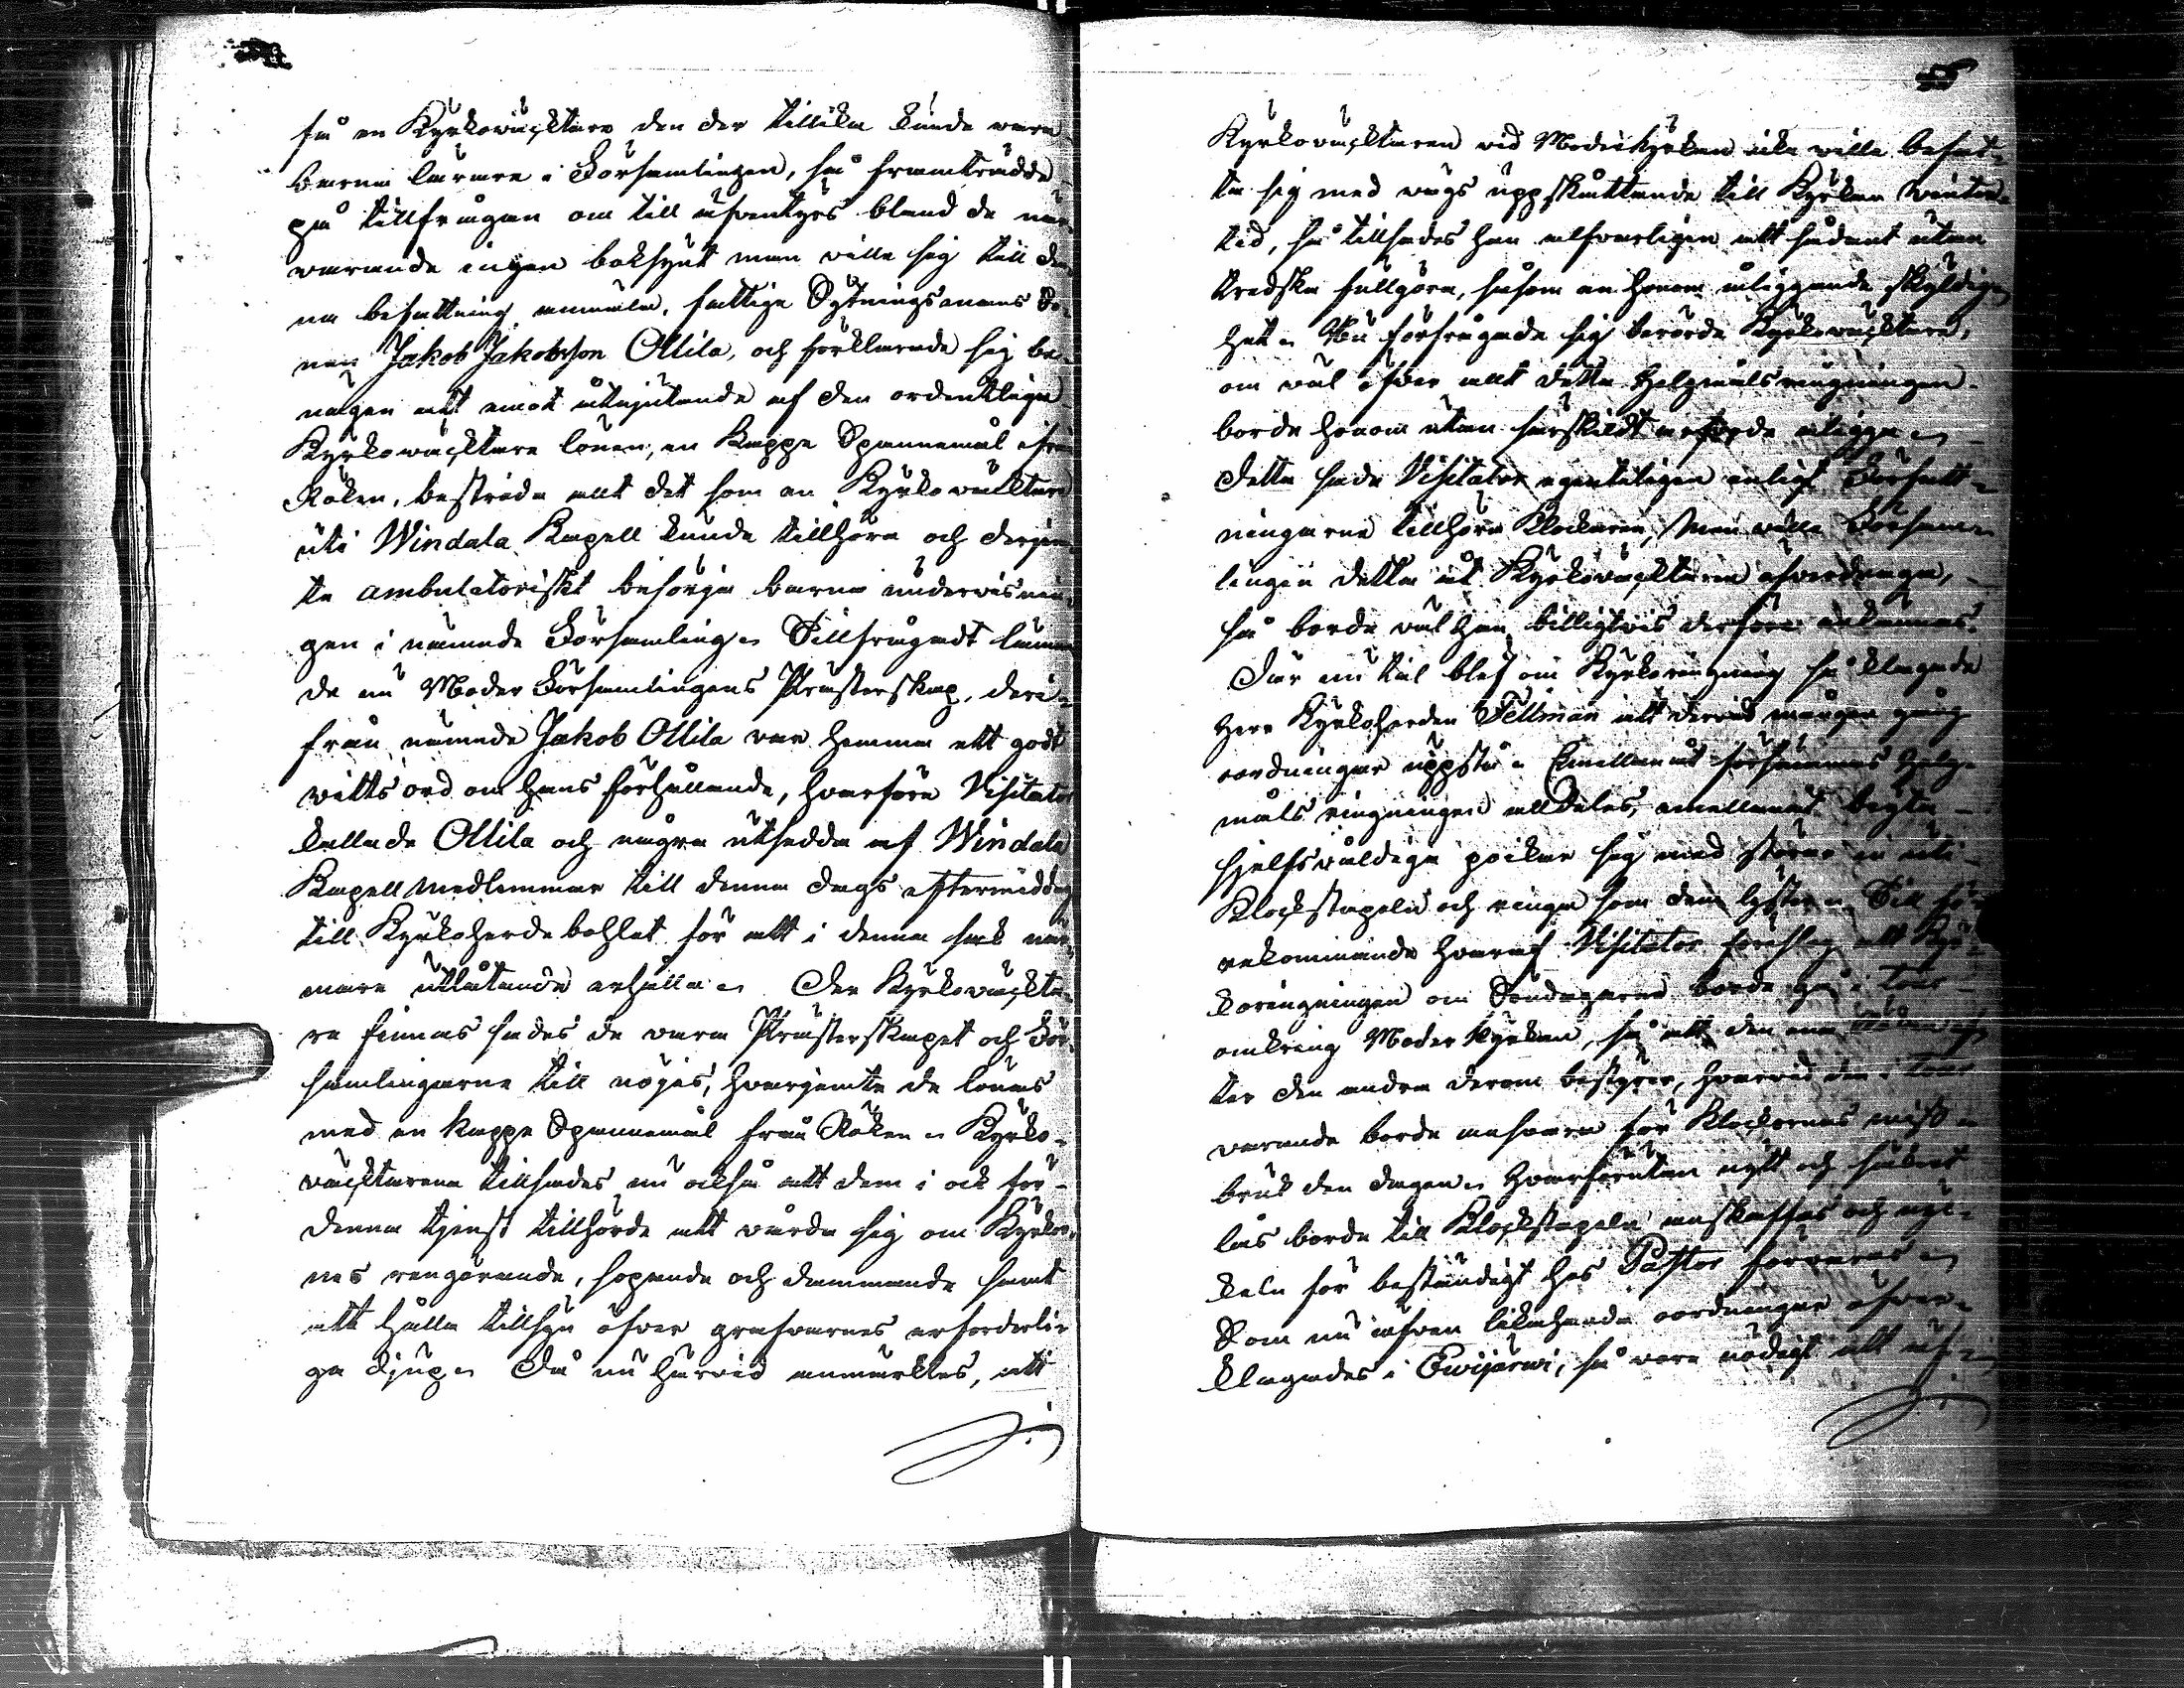 få en Kyrkowäcktare den der tillika kunde wara
barna lärare i Församlingen, så framträdde
på tillfrågan om till äfventyrs bland de när-
warande ingen boksynt man ville sig till den-
na befattning anmäla, fattige Sytningsmans So-
nen Jakob Jakobsson Ollila, och förklarade sig be-
nägen att emot åtnjutande af den ordentliga
Kyrkowäcktare lönen, en Kappe Spannemål ifrån
Röken, bestrida allt det som en Kyrkowäcktare
uti Windala Kapell kunde tillhöra och derjem-
te ambulatoriskt besörja barna undervisnin-
gen i nämnde Församling. Tillfrågadt lämna-
de nu Moder Församlingens Prästerskap, deri-
från nämnde Jakob Ollila var hemma ett godt
witts ord om hans förhållande, hvarföre Visitator
kallade Ollila och några utsedda af Windala
Kapell medlemmar till denna dags eftermiddag
till Kyrkoherdebohlet för att i denna sak när-
mare utlåtande erhålla. Der Kyrkowäckta-
re finnas sades de vara Prästerskapet och För-
samlingarne till nöjes, hvarjemte de lönas
med en kappe Spannemål från Röken. Kyrko-
wäcktarena tillsades nu också att dem i och för
denna tjenst tillhörde att vårda sig om Kyrkor-
nes rengörande, sopande och dammande samt
att hålla tillsyn öfver grafvarnes erforderli-
ga djup. Då nu härvid anmärktes, att
55
Kyrkowäcktaren vid Moderkyrkan icke ville befat-
ta sig med vägs uppskottande till Kyrkan winter-
tid, så tillsades han alfvarligen att sådant utan
tredska fullgöra, såsom en honom åliggande skyldig-
het. Nu förfrågade sig berörde Kyrkowäcktare,
om väl öfver allt detta Helgmålsringningen
borde honom utan särskildt arfvode åligga.
Detta sade Visitator egenteligen enligt Författ-
ningarne tillhöra Klockaren, Men ville Försam-
lingen detta åt Kyrkowäcktaren öfverdraga,
så borde väl han billigtvis derföre erkännas.
Där nu tal blef om Kyrkoringning så klagade
Herr Kyrkoherden Fellman att dervid mången gång
oordningar uppstå. Emellanåt försummas helg-
måls ringningen alldeles, emellanåt begifva
sjelfsvåldiga poikar sig med större in uti
Klockstapeln och ringa som dem lyster. Till fö-
rekommande hvaraf Visitator föreslog att Kyr-
koringningen om Söndagarne borde gå i tour
omkring Moder Kyrkan, så att den ena Röken ef-
ter den andra derom bestyrer, hvarvid den i tour
varande borde ansvara för Klockornas miss-
bruk den dagen. Hvarförutan nytt och säkert
lås borde till Klockstapeln anskaffas och nyc-
keln för beständigt hos Pastor förvaras.
Som nu äfven likahanda oordningar öfver-
klagades i Ewijärwi, så vore nödigt att äf-